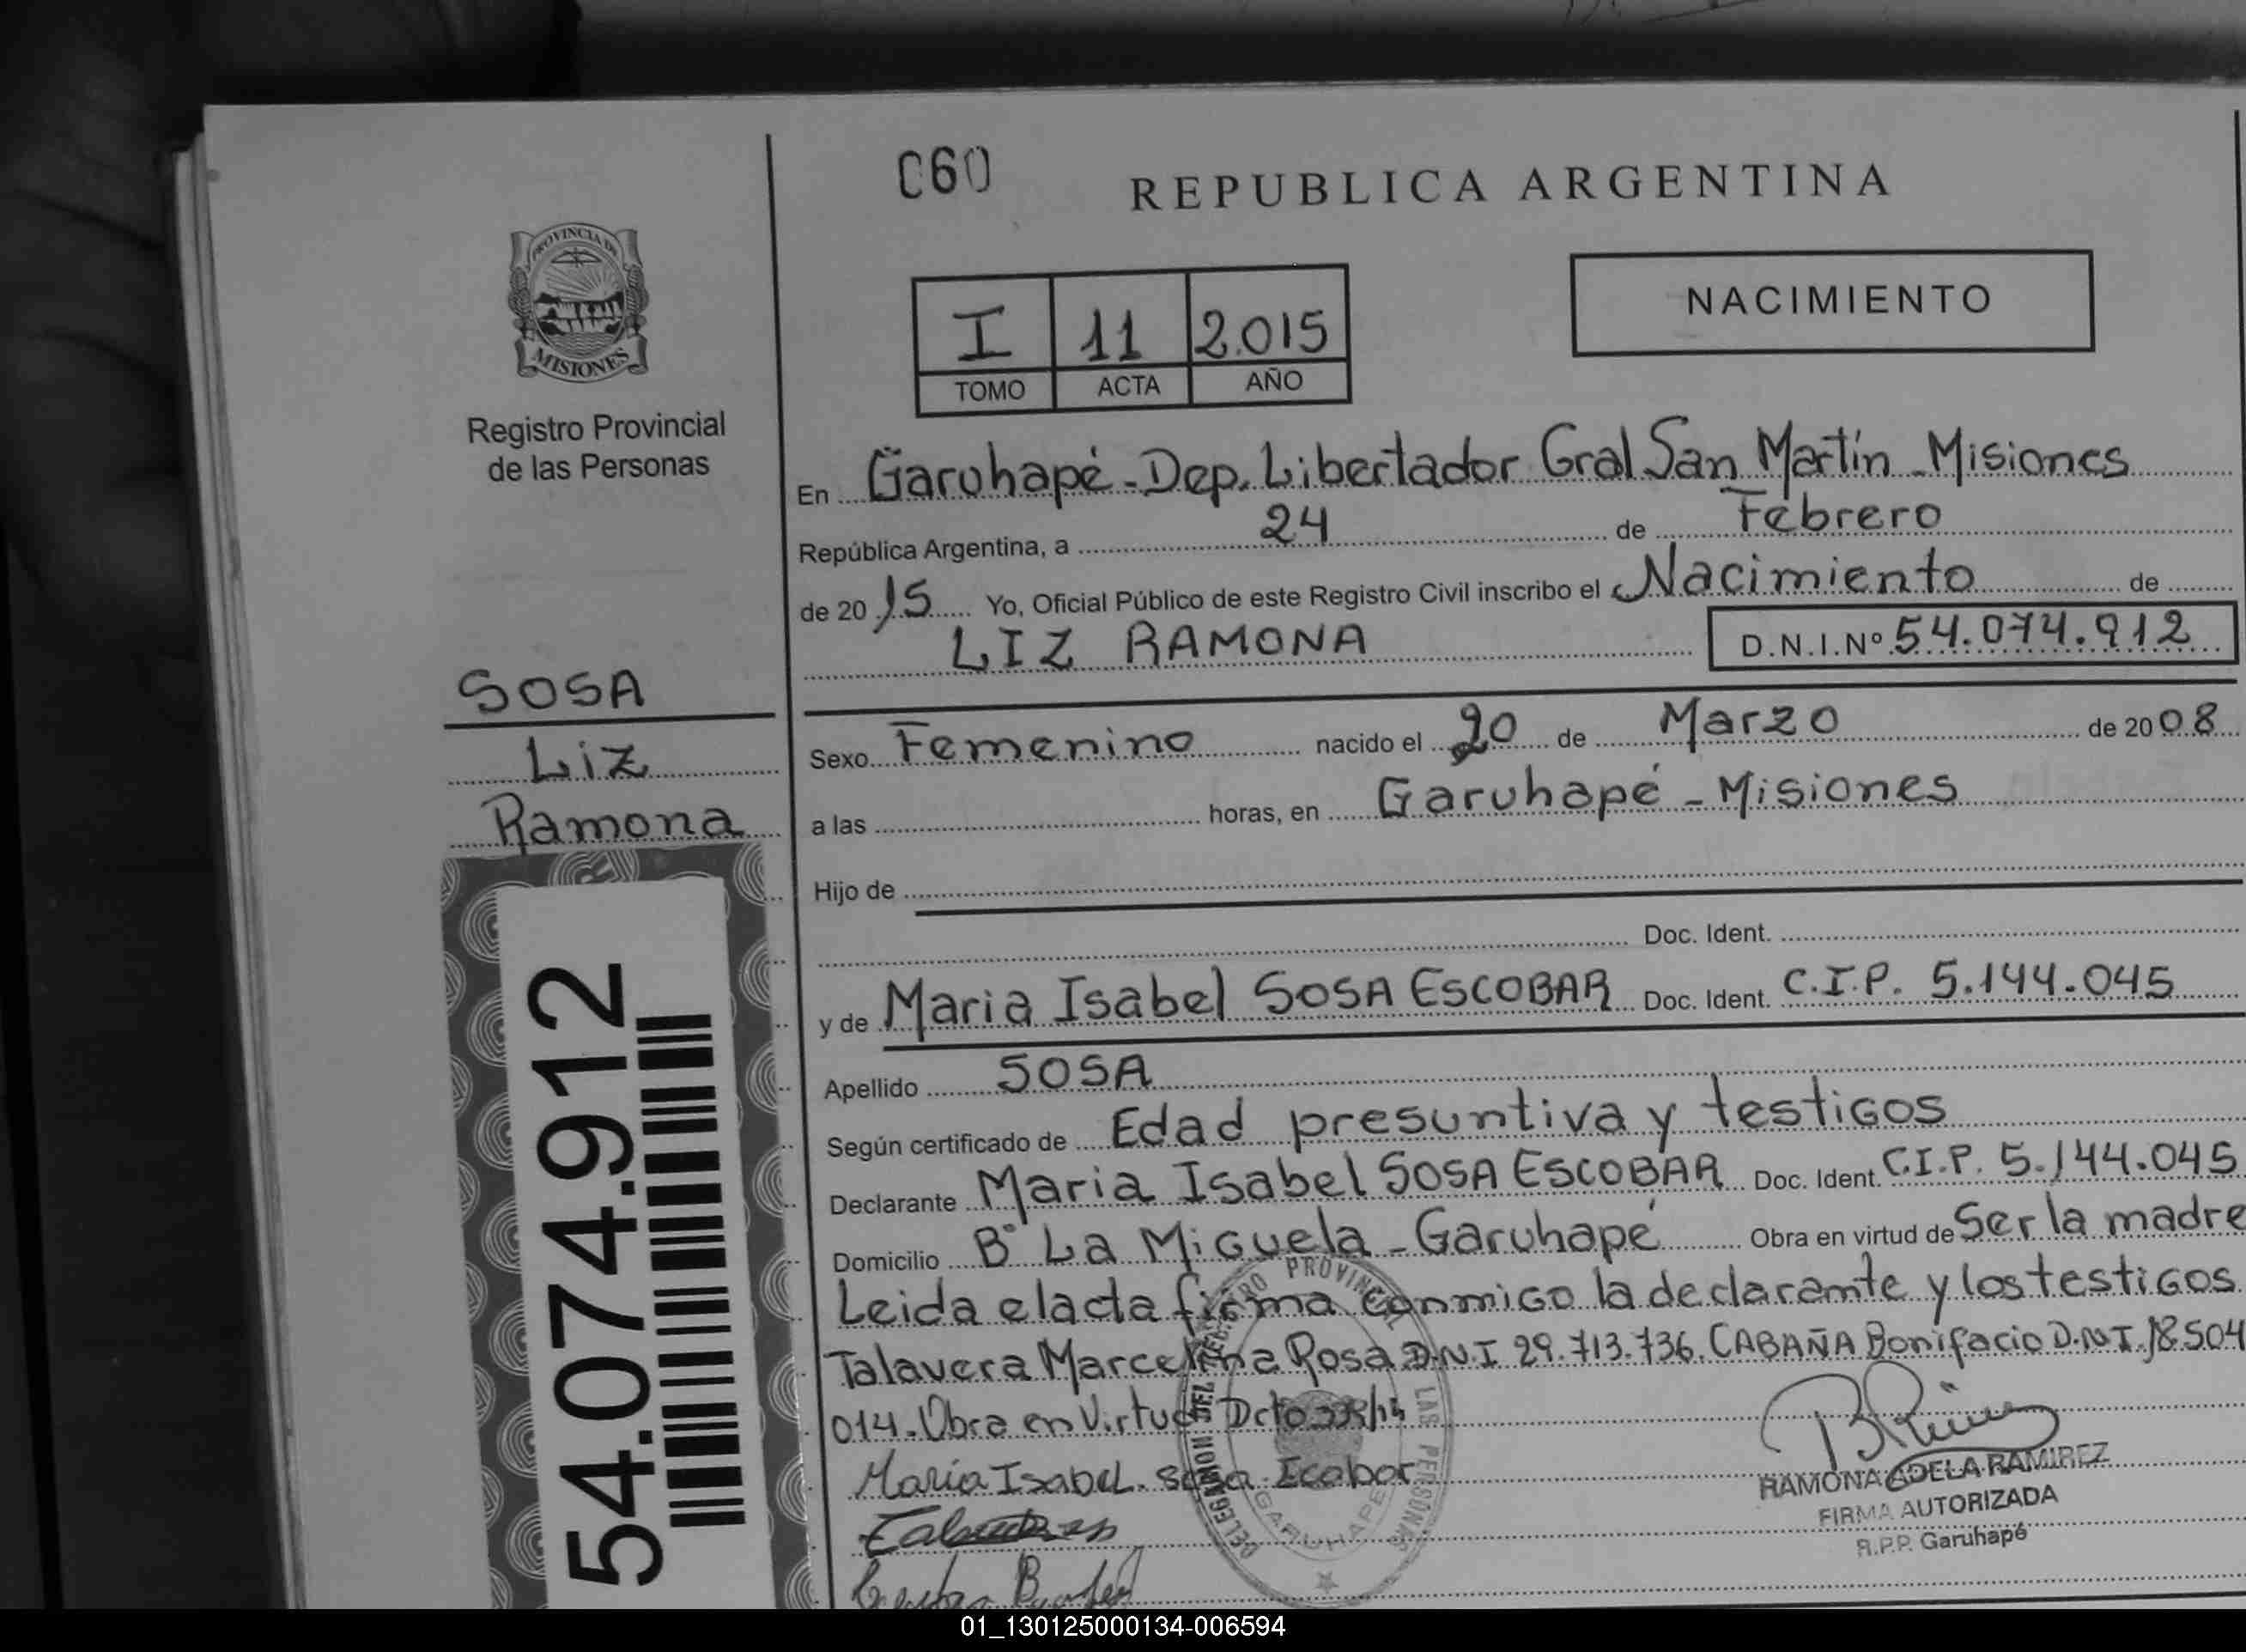 C60
REPUBLICA ARGENTINA
PROVINCIA DE
MISIONES
Registro Provincial
de las Personas
I 11 2.015
TOMO ACTA AÑO
NACIMIENTO
En Garuhapé - Dep. Libertador Gral San Martín - Misiones
República Argentina, a 24 de Febrero
de 2015 Yo, Oficial Público de este Registro Civil inscribo el Nacimiento de
LIZ RAMONA D.N.I.Nº 54.074.912
SOSA
Liz
Ramona
54.074.912
Sexo Femenino nacido el 20 de Marzo de 2008
a las horas, en Garuhapé - Misiones
Hijo de
Doc. Ident.
y de Maria Isabel SOSA ESCOBAR Doc. Ident. C.I.P. 5.144.045
Apellido SOSA
Según certificado de Edad presuntiva y testigos
Declarante Maria Isabel SOSA ESCOBAR Doc. Ident. C.I.P. 5.144.045
Domicilio Bº La Miguela - Garuhapé Obra en virtud de Ser la madre
Leida el acta firma conmigo la declarante y los testigos
Talavera Marcelina Rosa D.N.I 29.713.736. CABAÑA Bonifacio D.N.I. 18.504
014. Obra en Virtud Dcto
María Isabel. Sosa Escobar
DELEGACION DEL REGISTRO PROVINCIAL DE LAS PERSONAS
GARUHAPE
RAMONA ADELA RAMIREZ
FIRMA AUTORIZADA
R.P.P. Garuhapé
01_130125000134-006594